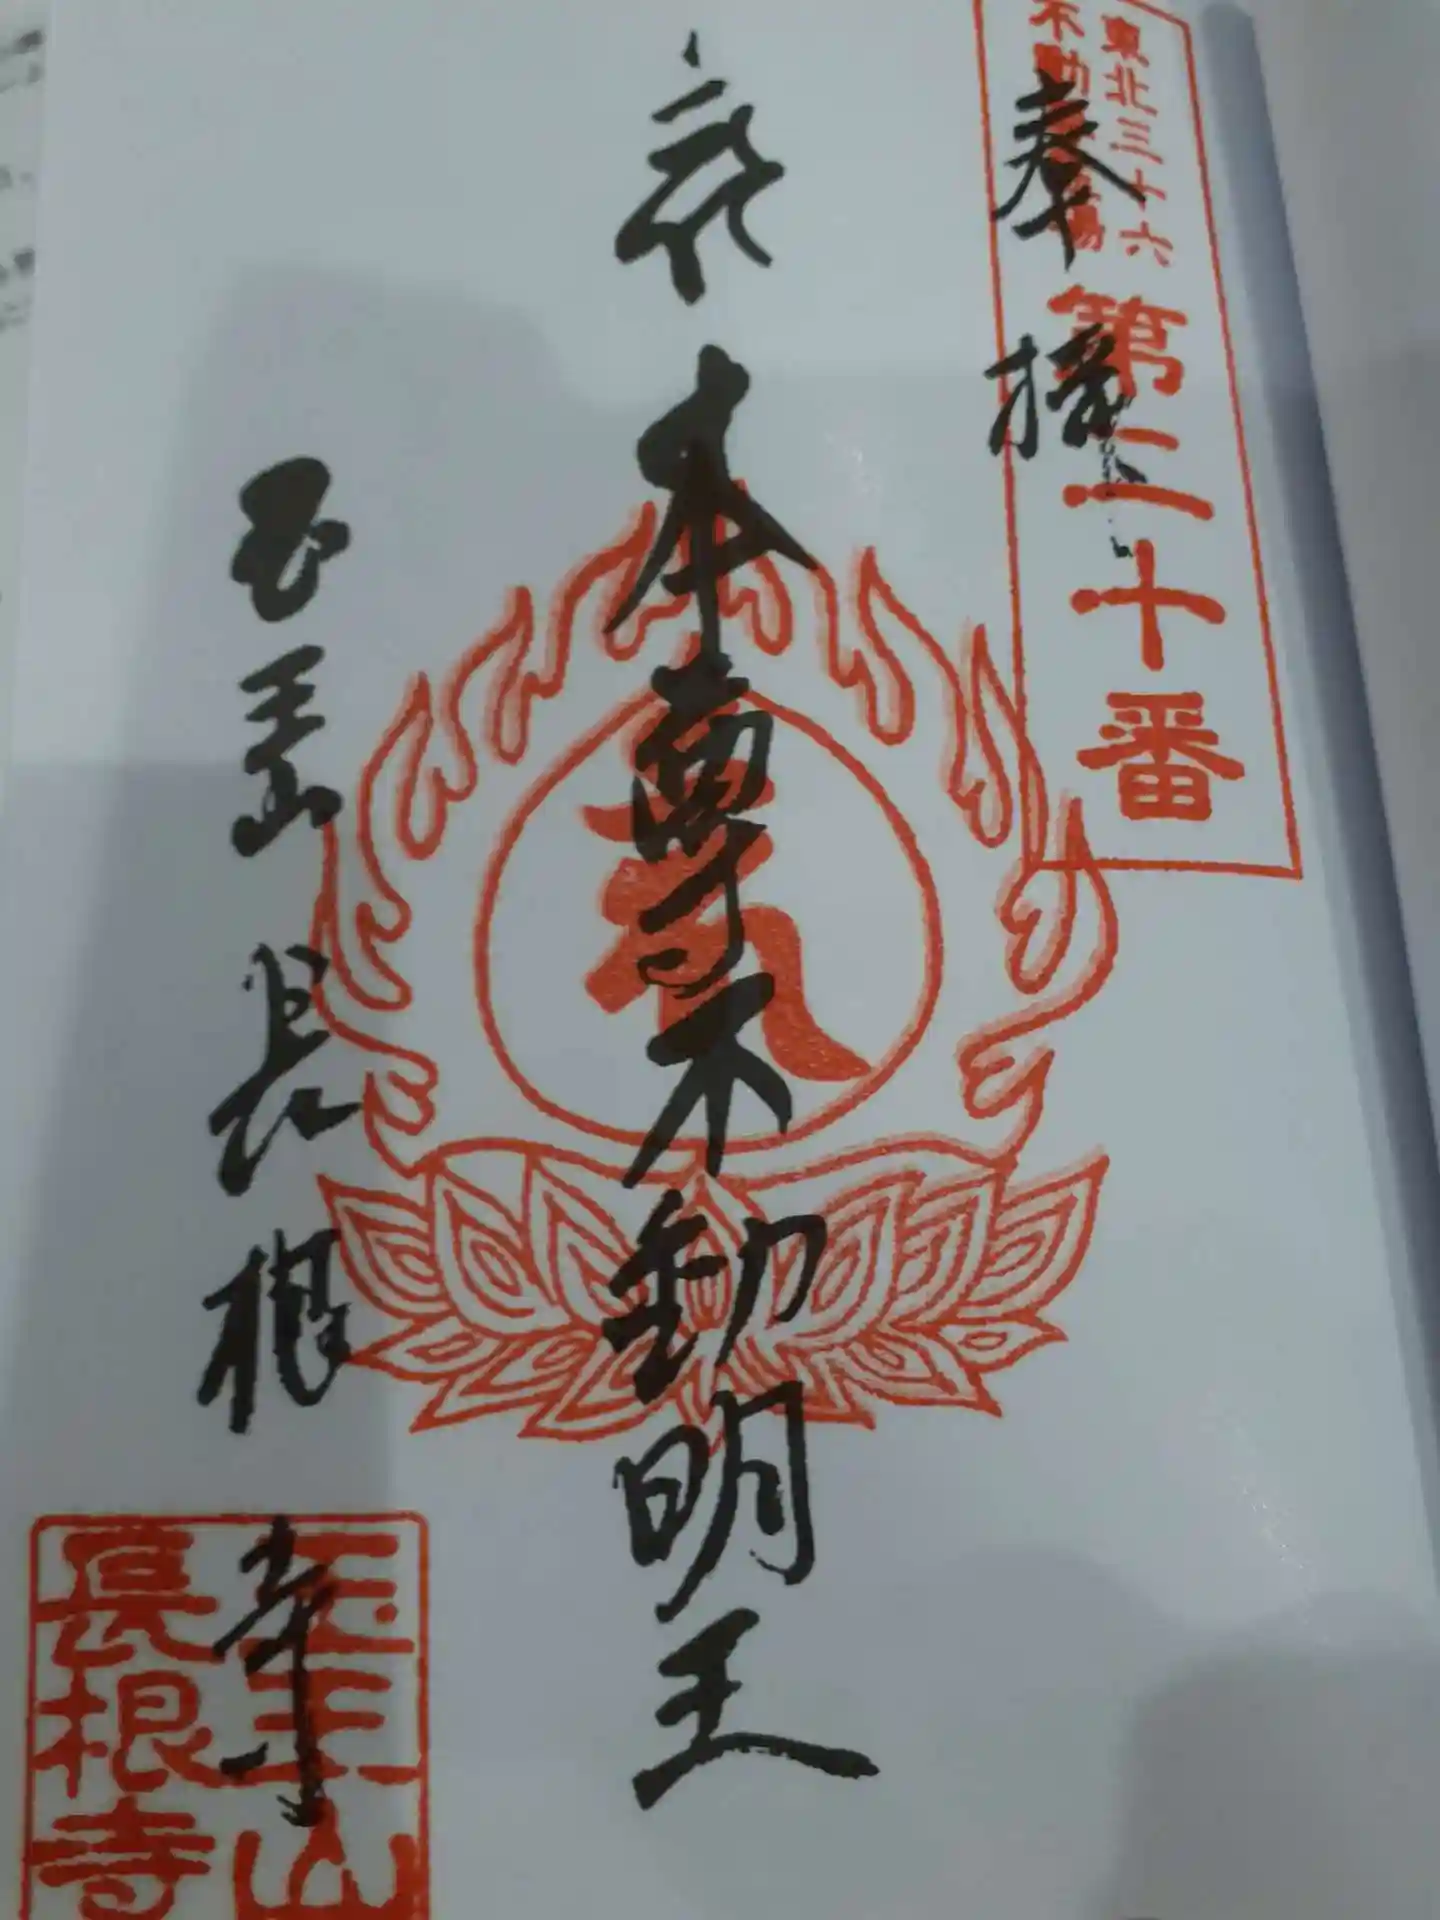 東北三十六
不動尊霊場
第二十番
奉拝
本尊不動明王
玉王山長根寺
玉王山
長根寺